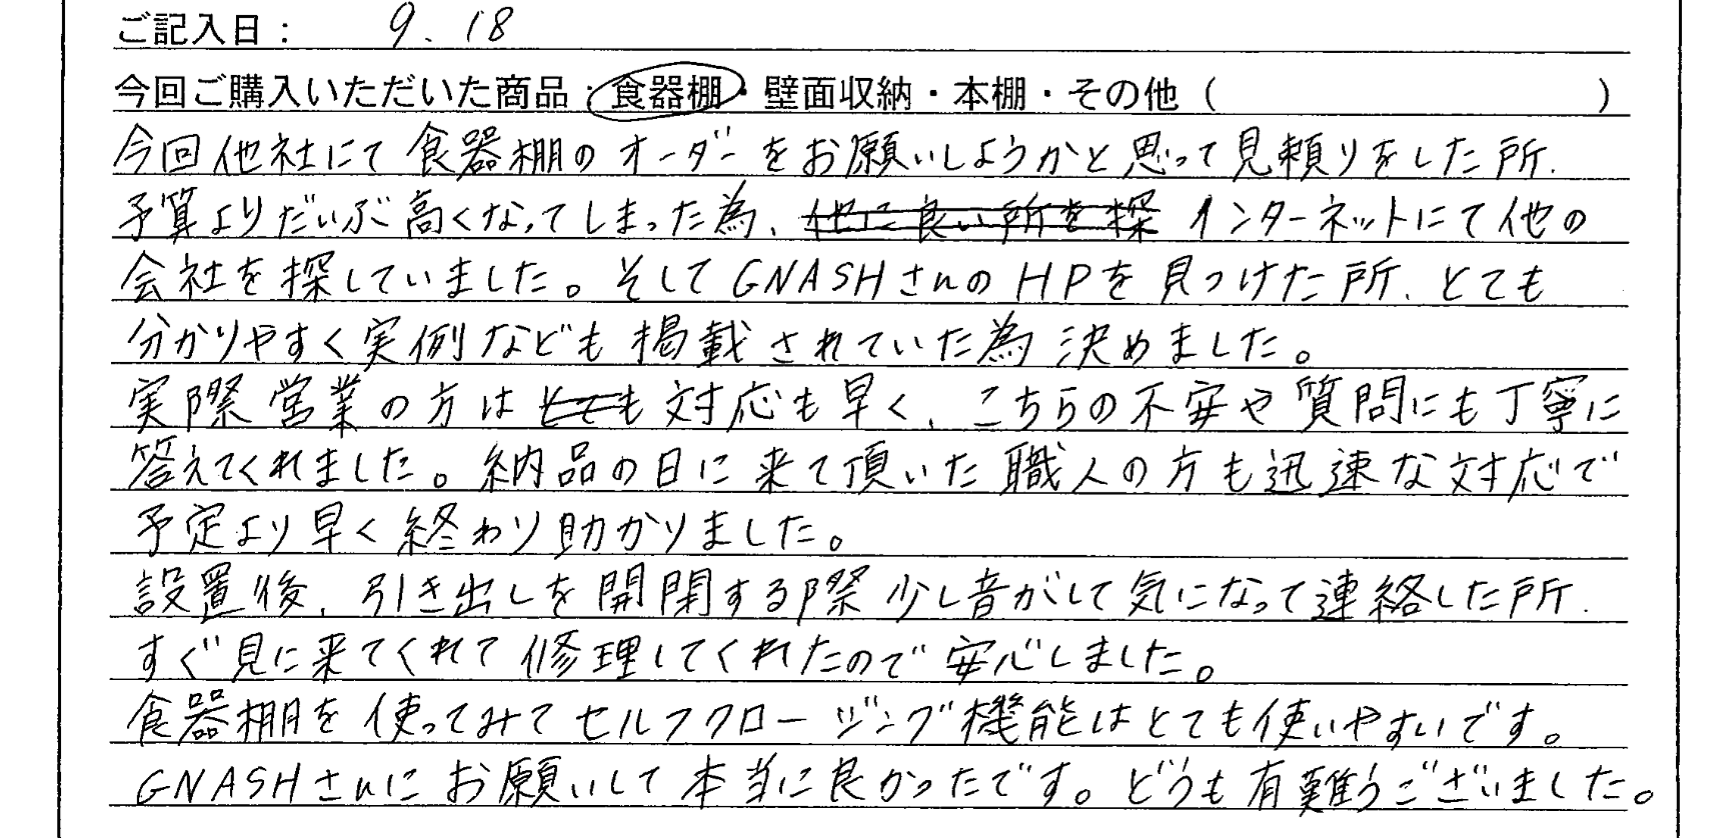 ご記入日： 9.18
今回ご購入いただいた商品・食器棚・壁面収納・本棚・その他（　　　　　）
今回他社にて食器棚のオーダーをお願いしようかと思って見頼りをした所、
予算よりだいぶ高くなってしまった為、他に良い所を探 インターネットにて他の
会社を探していました。そしてGNASHさんのHPを見つけた所、とても
分かりやすく実例なども掲載されていた為決めました。
実際営業の方はとても対応も早く、こちらの不安や質問にも丁寧に
答えてくれました。納品の日に来て頂いた職人の方も迅速な対応で
予定より早く終わり助かりました。
設置後、引き出しを開閉する際少し音がして気になって連絡した所、
すぐ見に来てくれて修理してくれたので安心しました。
食器棚を使ってみてセルフクロージング機能はとても使いやすいです。
GNASHさんにお願いして本当に良かったです。どうも有難うございました。